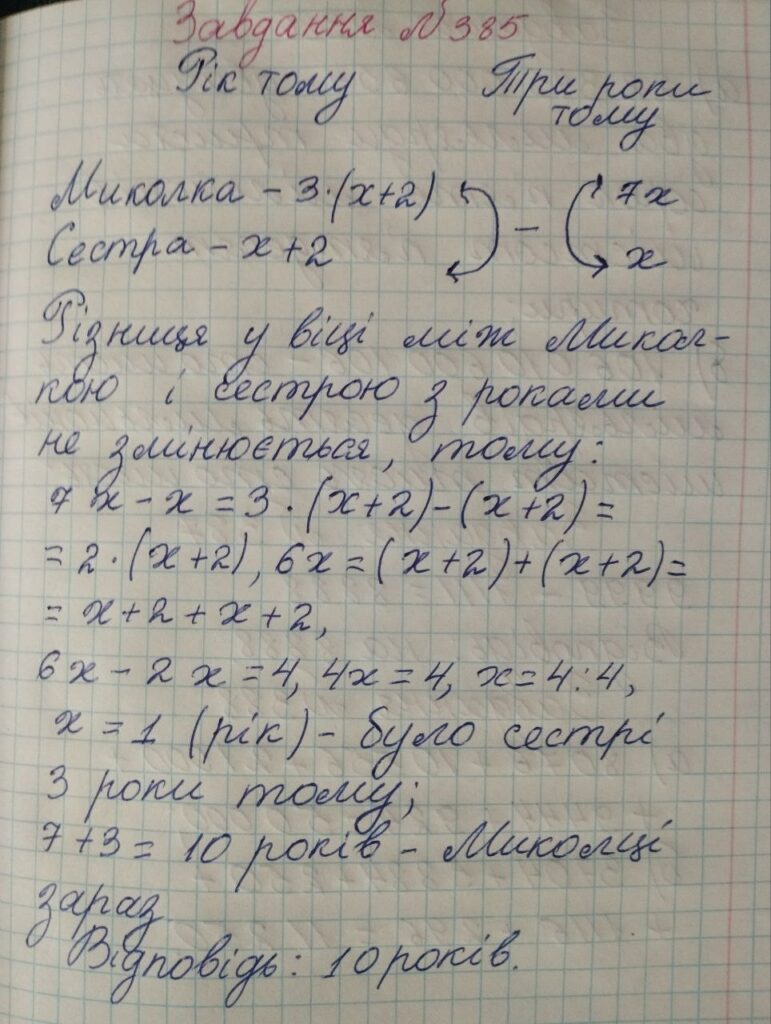 Завдання №385
Рік тому Три роки тому
Миколка – 3·(x+2) – 7x
Сестра – x+2 x
Різниця у віці між Микол-
кою і сестрою з роками
не змінюється, тому:
7x – x = 3·(x+2)–(x+2)=
= 2·(x+2), 6x = (x+2)+(x+2)=
= x+2+x+2,
6x – 2x = 4, 4x = 4, x = 4:4,
x = 1 (рік) – було сестрі
3 роки тому;
7+3 = 10 років – Миколці
зараз
Відповідь: 10 років.